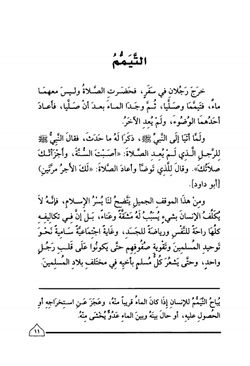 التَّيَمُّمُ
خرَجَ رَجُلَانِ في سفَرٍ، فحضَرتِ الصَّلاةُ وليسَ معهما
ماءٌ، فتيمَّما وصلَّيا، ثُمَّ وجَدَا الماءَ بعدَ أنْ صلَّيا، فأعادَ
أحَدُهما الوُضوءَ، ولمْ يُعِدِ الآخرُ.
ولمَّا أتيَا إلى النَّبيِّ ﷺ، ذكَرَا لهُ ما حدَثَ، فقالَ النَّبيُّ ﷺ
للرَّجلِ الَّذي لم يُعِدِ الصَّلاةَ: «أصبْتَ السُّنَّةَ، وأجزأتْكَ
صلاتُكَ». وقالَ للَّذي توضَّأَ وأعادَ الصَّلاةَ: «لكَ الأجرُ مرَّتينِ»
[أبو داود].
ومِنْ هذا الموقفِ الجميلِ يتَّضحُ لنَا يُسرُ الإسلامِ، فإنَّهُ لا
يُكلِّفُ الإنسانَ بشيءٍ يُسبِّبُ لهُ مشقَّةً وعناءً، بلْ إنَّ في تكاليفِهِ
كلِّها راحةً للنَّفسِ ورياضةً للجسَدِ، وغايةً اجتماعيَّةً ساميةً نحْوَ
توحيدِ المسلمينَ وتقويةِ صفوفِهم حتَّى يكونُوا على قلبِ رجُلٍ
واحدٍ، وحتَّى يَشعُرَ كلُّ مسلمٍ بأخيهِ في مختلِفِ بلادِ المسلمينَ
يُباحُ التَّيمُّمُ للإنسانِ إذَا كانَ الماءُ قريباً منهُ، وعجَزَ عنِ استخراجِهِ أوِ
الحصولِ عليهِ، أو حالَ بينَهُ وبينَ الماءِ عدُوٌّ يُخْشَى منْهُ.
١١